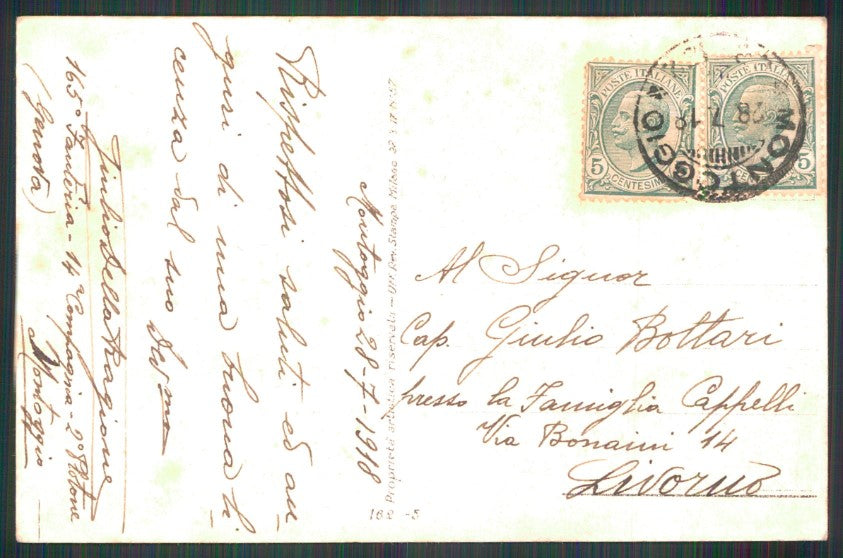 Montoggio 28-7-1918
Rispettosi saluti ed au
guri di una buona li
cenza dal suo Dev.mo
Giulio Della Ragione
165° Fanteria - 14ª Compagnia - 2° Plotone
(Genova) Montoggio
Proprietà artistica riservata - Uff. Rev. Stampa, Milano
162 - 5
POSTE ITALIANE
5
CENTESIMI
POSTE ITALIANE
5
MONTOGGIO
28 7 18
Al Signor
Cap. Giulio Bottari
presso la Famiglia Cappelli
Via Bonaini 14
Livorno